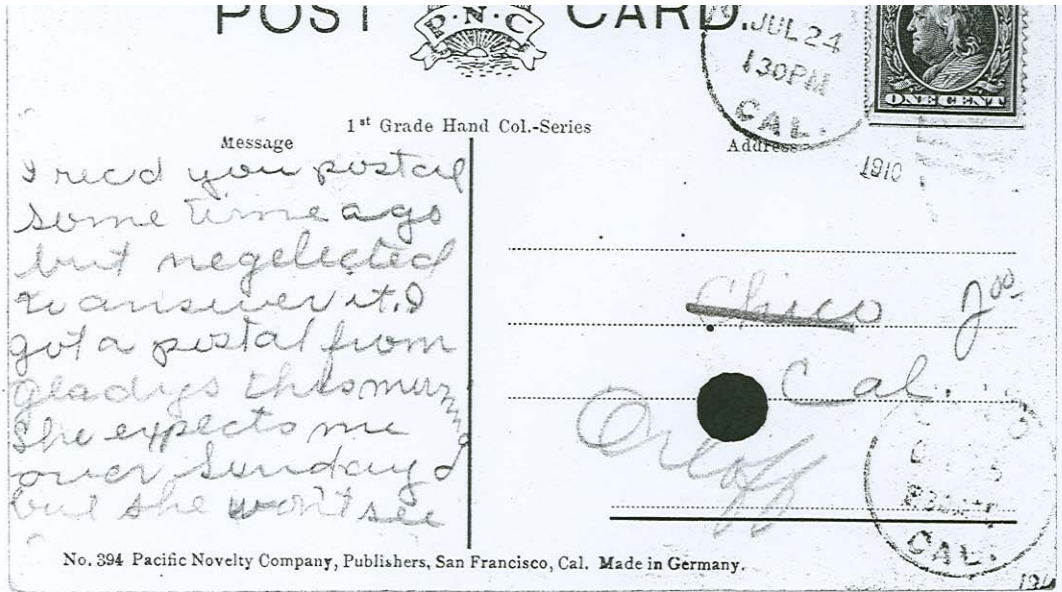 POST CARD.
P.N.C
JUL 24
130PM
CAL.
ONE CENT
1st Grade Hand Col.-Series
Message
Address
1910
I recd you postal
some time ago
but negelected
to answer it. I
got a postal from
Gladys this morning
She expects me
over Sunday
but she won't see
Chico
Cal.
Orloff
CAL.
No. 394 Pacific Novelty Company, Publishers, San Francisco, Cal. Made in Germany.